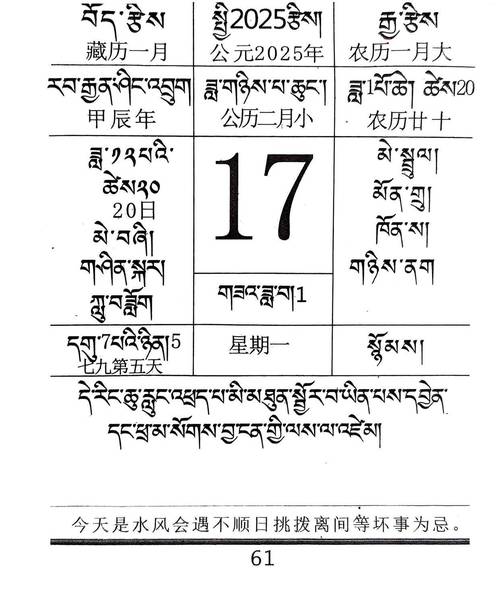 བོད་རྩིས
སྤྱི2025རྩིས།
རྒྱ་རྩིས
藏历一月
公元2025年
农历一月大
རབ་རྒྱན་ཤིང་འབྲུག
ཟླ་གཉིས་པ་ཆུང་།
ཟླ་1པོ་ཆེ། ཚེས20
甲辰年
公历二月小
农历廿十
ཟླ་༡༢པའི་
ཚེས༢༠
20日
མེ་བཞི།
གཤིན་སྐར།
ཀླུ་བཟློག
17
གཟའ་ཟླ་བ།1
མེ་སྦྲུལ།
མོན་གྲུ།
ཁོན་ས།
གཉིས་ནག
དགུ་7པའི་ཉིན།5
七九第五天
星期一
སྙོམས།
དེ་རིང་ཆུ་རླུང་འཕྲད་པ་མི་མཐུན་སྦྱོར་བ་ཡིན་པས་དབྱེན་
དང་ཕྲ་མ་སོགས་བྱ་ངན་གྱི་ལས་ལ་འཛེམ།
今天是水风会遇不顺日挑拨离间等坏事为忌。
61